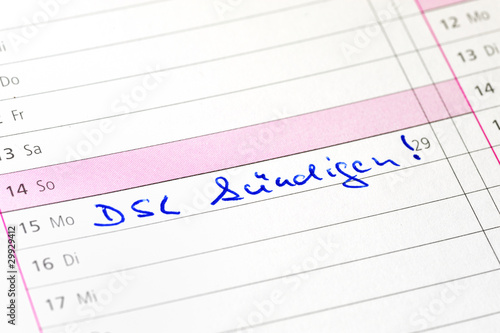 Do
Fr
13 Sa
14 So
15 Mo DSL kündigen! 29
16 Di
17 Mi
12 Mo
13 Di
14
29929412